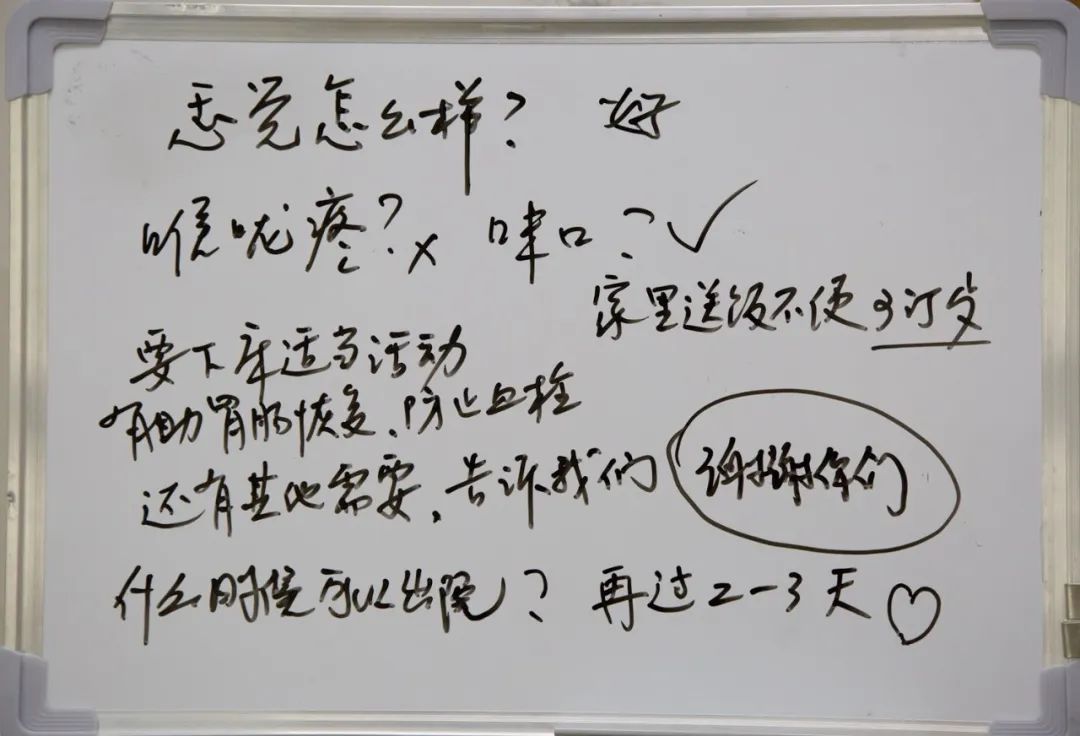 感觉怎么样? 好
喉咙疼? × 哮口? ✓
家里送饭不便
要下床适当活动
有助胃肠恢复、防止血栓
还有其他需要,告诉我们 谢谢你们
什么时侯可以出院? 再过2-3天♡